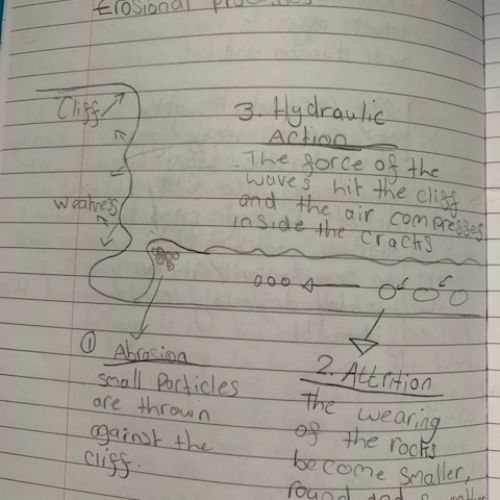 Erosional processes
Cliff
3. Hydraulic
Action
The force of the
waves hit the cliff
and the air compresses
inside the cracks
weakness
① Abrasion
small particles
are thrown
against the
cliff.
2. Attrition
The wearing
of the rocks
become smaller,
round